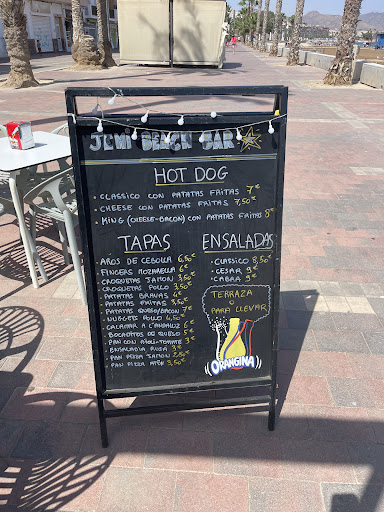 JEMI BEACH BAR
HOT DOG
• CLASSICO CON PATATAS FRITAS 7€
• CHEESE CON PATATAS FRITAS 7,50€
• KING (CHEELE-BACON) CON PATATAS FRITAS 8€
TAPAS
AROS DE CEBOLLA 6,50€
FINGERS MOZZARELLA 6€
CROQUETAS JAMON 3,50€
CROQUETAS POLLO 3,50€
PATATAS BRAVAS 4€
PATATAS FRITAS 3,50€
PATATAS QUESO/BACON 7€
NUGGETS POLLO 4,50€
CALAMAR A L'ANDALUZ 6€
BOCADITOS DE QUESO 5€
PAN CON AIOLI-TOMATE 3€
ENSALADIA RUSA 3€
PAN PIZZA JAMON 3,50€
PAN PIZZA ATÚN 3,50€
ENSALADAS
• CLASSICO 8,50€
• CESAR 9€
• CABRA 9€
TERRAZA
O
PARA LLEVAR
ORANGINA